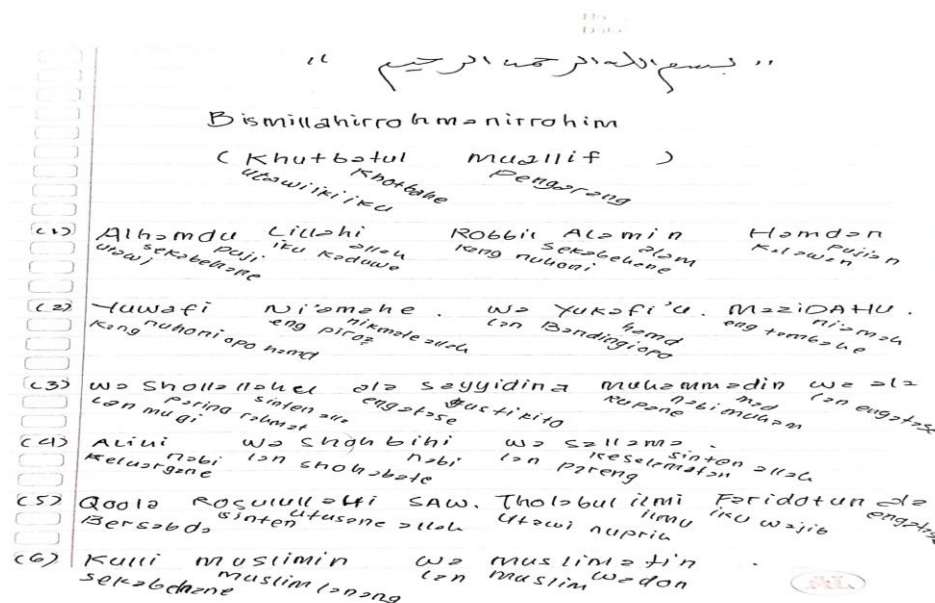 No.
Date.
" بسم الله الرحمن الرحيم "
Bismillahirrohmanirrohim
( Khutbatul Muallif )
utawi iki iku Khotbahe Pengarang
(1) Alhamdu Lillahi Robbil Alamin Hamdan
utawi sekabehane puji iku kaduwe allah kang nuhoni sekabehane alam Kalawan Pujian
(2) Yuwafi Ni'amahe . wa Yukafi'u . MaziDAHU .
Kang nuhoni opo hamd eng piro2 nikmate allah lan Bandingi opo hamd eng tambahe ni'amah
(3) wa Shollallahu ala Sayyidina Muhammadin wa ala
lan mugi paring rahmat sinten alla engatase gusti kito Rupane nabi muham mad lan engatase
(4) Alihi wa Shohbihi wa Sallama .
Keluargane nabi lan shohabate nabi lan pareng keselamatan sinten allah
(5) Qoola Rosulullahi SAW. Tholabul ilmi Faridotun ala
Bersabda sinten utusane allah utawi nuprih ilmu iku wajib engatase
(6) Kulli muslimin wa muslimatin .
sekabehane muslim lanang lan muslim wadon